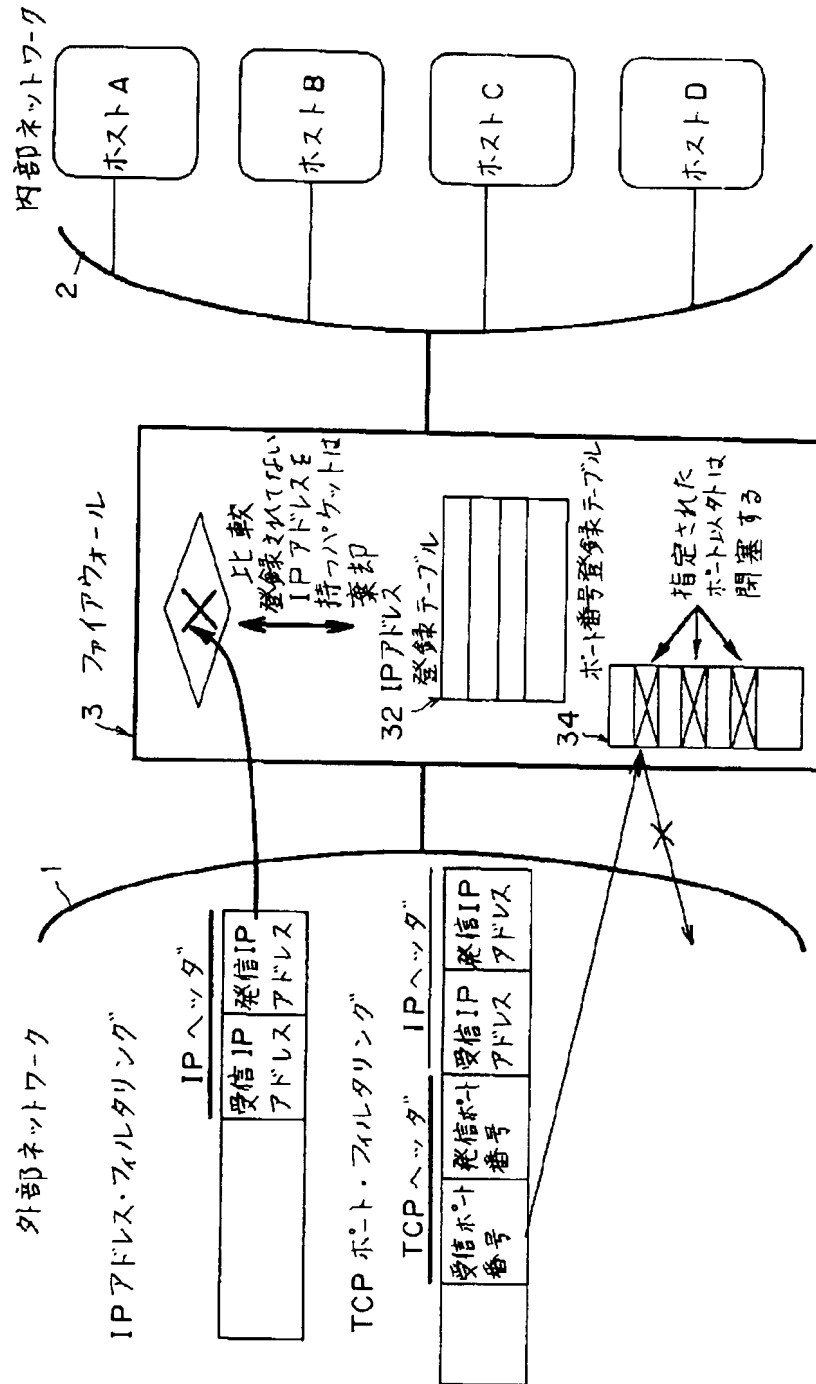 外部ネットワーク
IPアドレス・フィルタリング
IPヘッダ
受信IP
アドレス
発信IP
アドレス
TCPポート・フィルタリング
TCPヘッダ
IPヘッダ
受信ポート
番号
発信ポート
番号
受信IP
アドレス
発信IP
アドレス
1
3 ファイアウォール
比較
登録されてない
IPアドレスを
持つパケットは
棄却
32 IPアドレス
登録テーブル
ポート番号登録テーブル
34
指定された
ポート以外は
閉塞する
内部ネットワーク
2
ホストA
ホストB
ホストC
ホストD